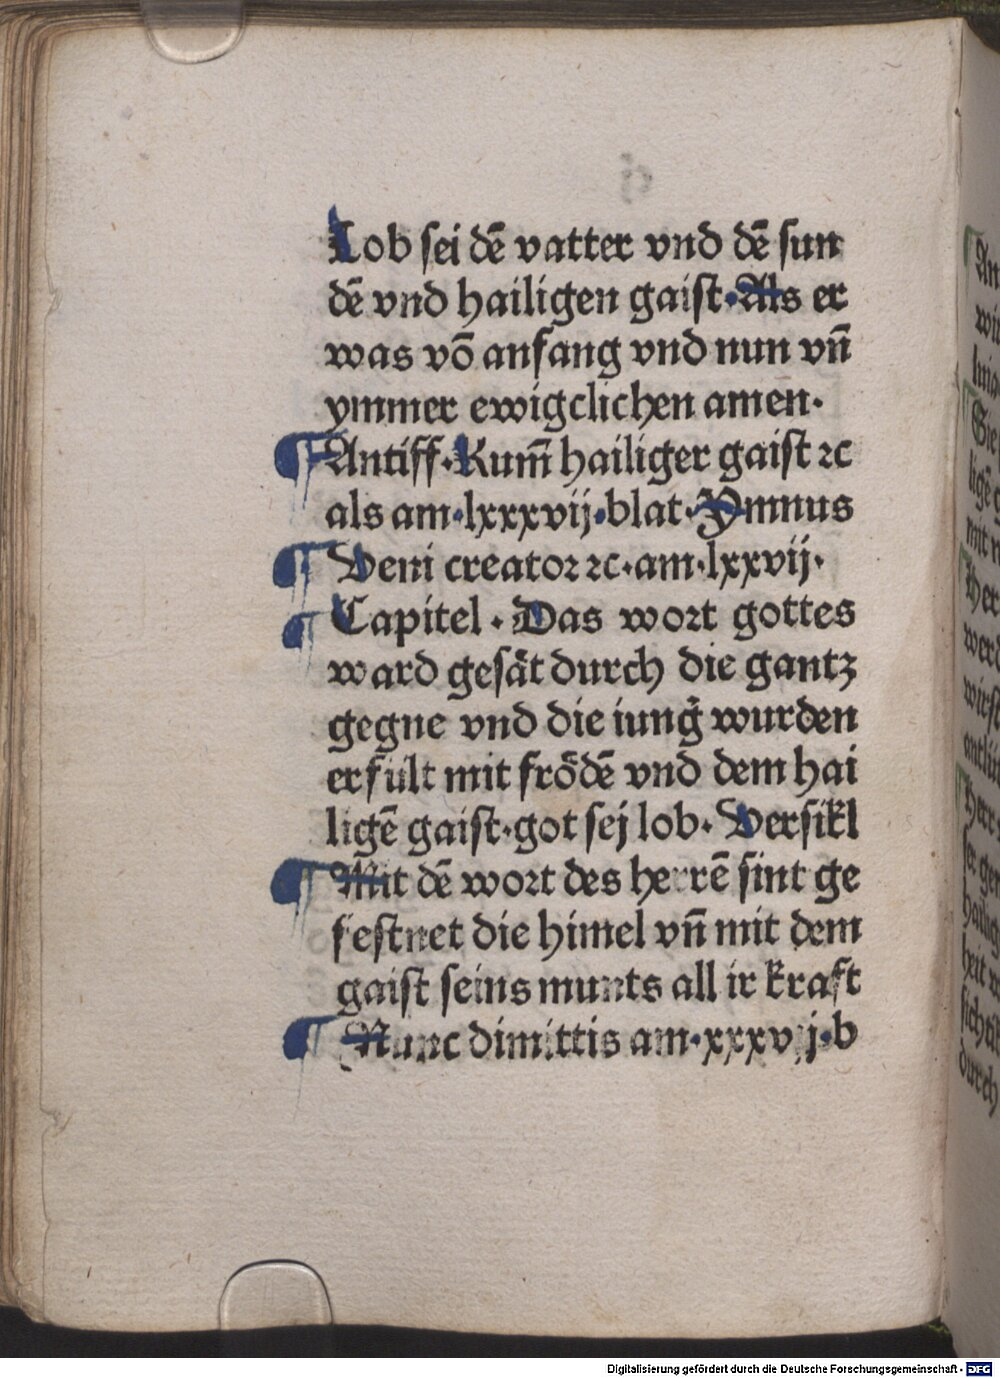 Lob sei dē vatter vnd dē sun
dē vnd hailigen gaist·Als er
was vō anfang vnd nun vn̄
ymmer ewigclichen amen·
Antiff·Kum̄ hailiger gaist ⁊c
als am·lxxxvij·blat·Ymnus
Veni creator ⁊c·am·lxxvij·
Capitel·Das wort gottes
ward gesät durch die gantz
gegne vnd die iunḡ wurden
erfült mit frödē vnd dem hai
ligē gaist·got sej lob·Versikl
Mit dē wort des herrē sint ge
festnet die himel vn̄ mit dem
gaist seins munts all ir kraft
Nunc dimittis am·xxxvij·b
Digitalisierung gefördert durch die Deutsche Forschungsgemeinschaft - DFG